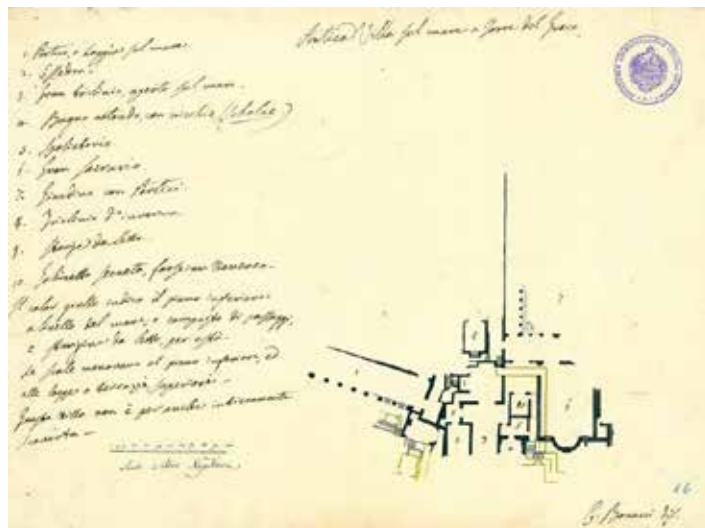 Antica Villa sul mare a Torre del Greco.
1. Portico, o loggia sul mare
2. Essedra.
3. Gran triclinio, aperto sul mare.
4. Bagno rotondo, con nicchie (Scholae)
5. Spoliatorio
6. Gran Sacrario
7. Giardino con Portici.
8. Triclinio d'inverno
9. Stanze da letto
10. Gabinetto segreto, forse un
Il color giallo indica il piano inferiore
a livello del mare, e composto di passaggi,
e stanzine da letto, per està.
Le scale menavano al piano inferiore, ed
alle logge o terrazze superiori.
Questa villa non è per anche interamente
scoverta
16
G. Bonucci dis.